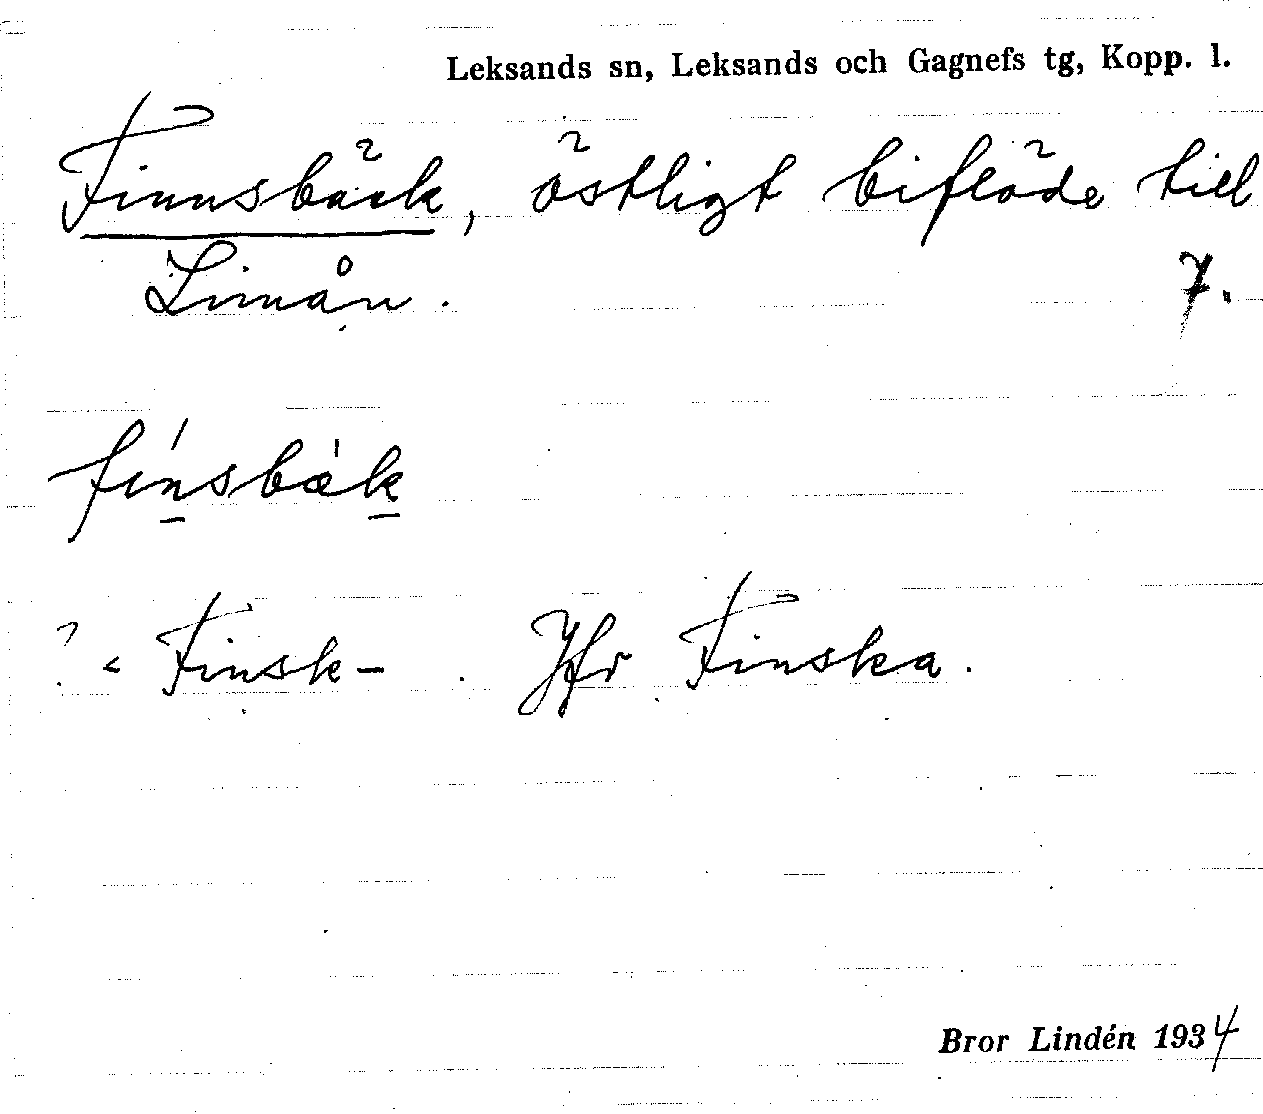 Leksands sn, Leksands och Gagnefs tg, Kopp. l.
Finnsbäck, östligt biflöde till
Limån. 7.
fínsbæ̀k
? < Finsk- . Jfr Finska.
Bror Lindén 1934